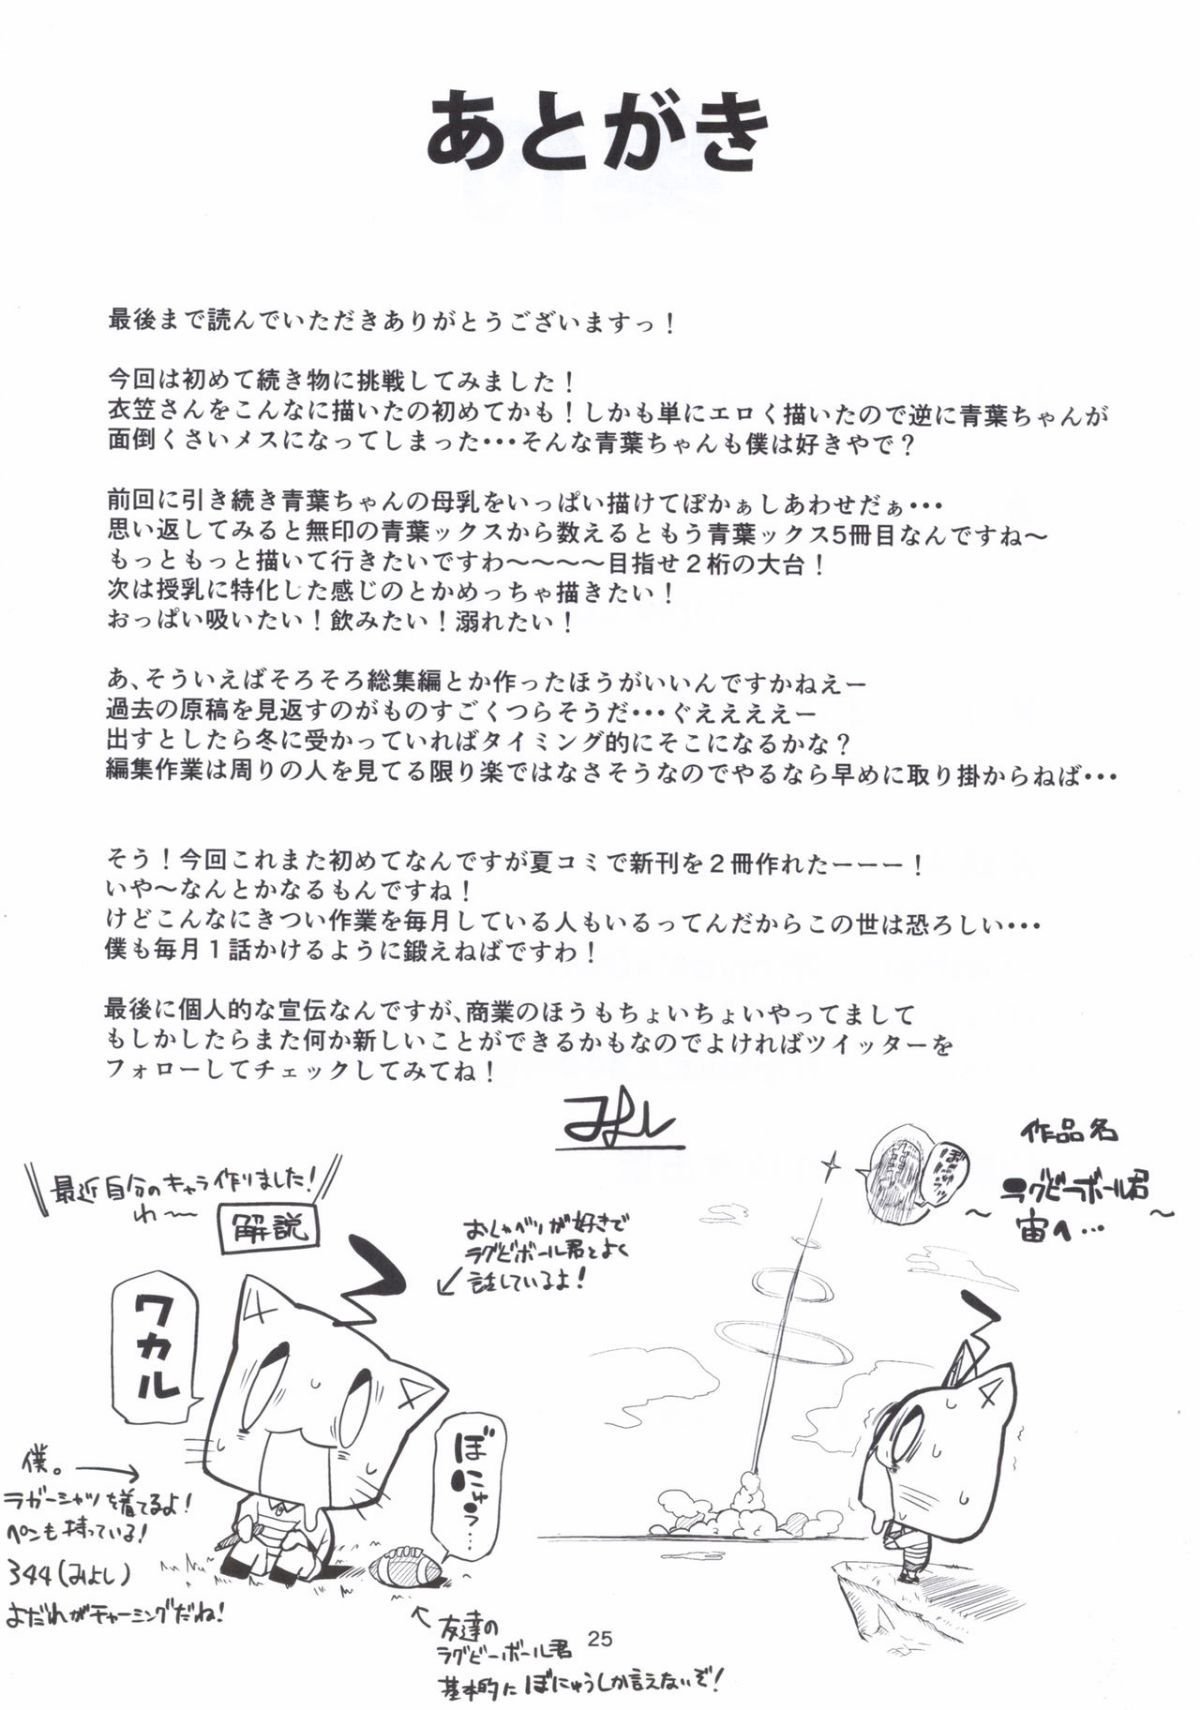 あとがき
最後まで読んでいただきありがとうございますっ！
今回は初めて続き物に挑戦してみました！
衣笠さんをこんなに描いたの初めてかも！しかも単にエロく描いたので逆に青葉ちゃんが
面倒くさいメスになってしまった・・・そんな青葉ちゃんも僕は好きやで？
前回に引き続き青葉ちゃんの母乳をいっぱい描けてぼかぁしあわせだぁ・・・
思い返してみると無印の青葉ックスから数えるともう青葉ックス5冊目なんですね～
もっともっと描いて行きたいですわ～～～～目指せ２桁の大台！
次は授乳に特化した感じのとかめっちゃ描きたい！
おっぱい吸いたい！飲みたい！溺れたい！
あ、そういえばそろそろ総集編とか作ったほうがいいんですかねえー
過去の原稿を見返すのがものすごくつらそうだ・・・ぐええええー
出すとしたら冬に受かっていればタイミング的にそこになるかな？
編集作業は周りの人を見てる限り楽ではなさそうなのでやるなら早めに取り掛からねば・・・
そう！今回これまた初めてなんですが夏コミで新刊を２冊作れたーーー！
いや～なんとかなるもんですね！
けどこんなにきつい作業を毎月している人もいるってんだからこの世は恐ろしい・・・
僕も毎月１話かけるように鍛えねばですわ！
最後に個人的な宣伝なんですが、商業のほうもちょいちょいやってまして
もしかしたらまた何か新しいことができるかもなのでよければツイッターを
フォローしてチェックしてみてね！
みよし
最近自分のキャラ作りました！
わ～～
解説
おしゃべりが好きで
ラグビーボール君とよく
話しているよ！
ワカル
ぼにゅう…
僕。
ラガーシャツを着てるよ！
ペンも持っている！
344(みよし)
よだれがチャーミングだね！
友達の
ラグビーボール君
基本的にぼにゅうしか言えないぞ！
作品名
～ラグビーボール君
宙へ…～
25